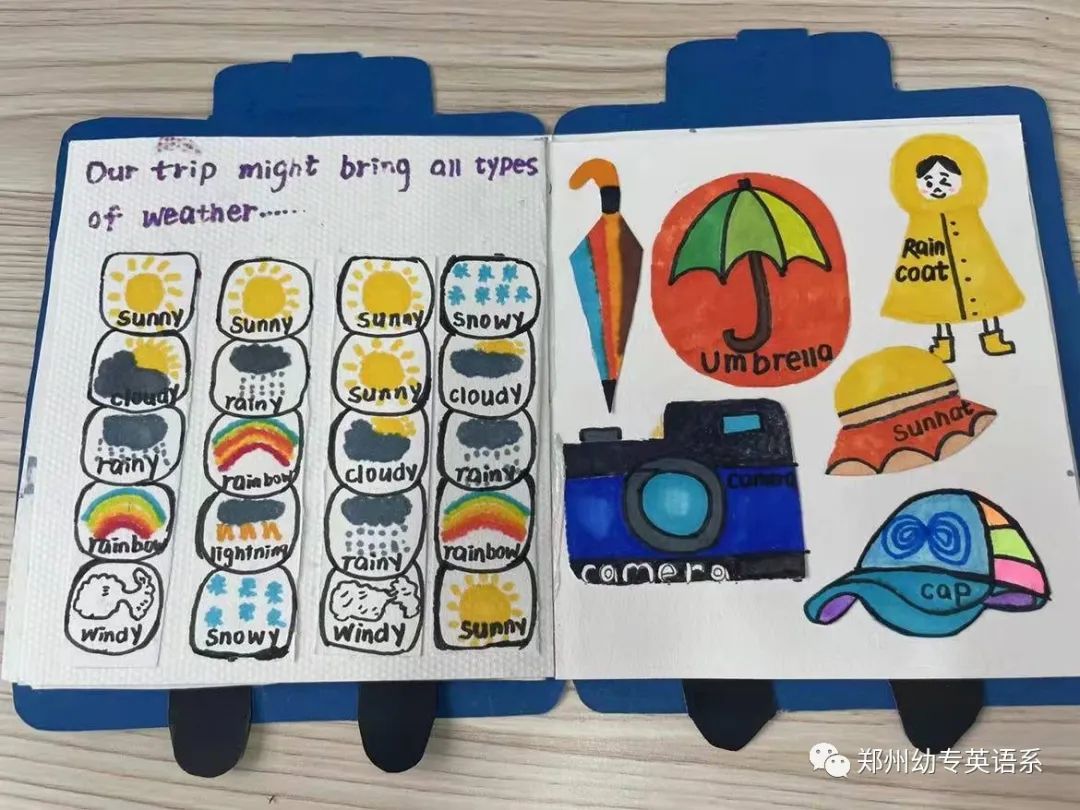 Our trip might bring all types
of weather......
sunny
cloudy
rainy
rainbow
windy
sunny
rainy
rainbow
lightning
snowy
sunny
sunny
cloudy
rainy
windy
snowy
cloudy
rainy
rainbow
sunny
umbrella
Rain
coat
camera
camera
sunhat
cap
郑州幼专英语系